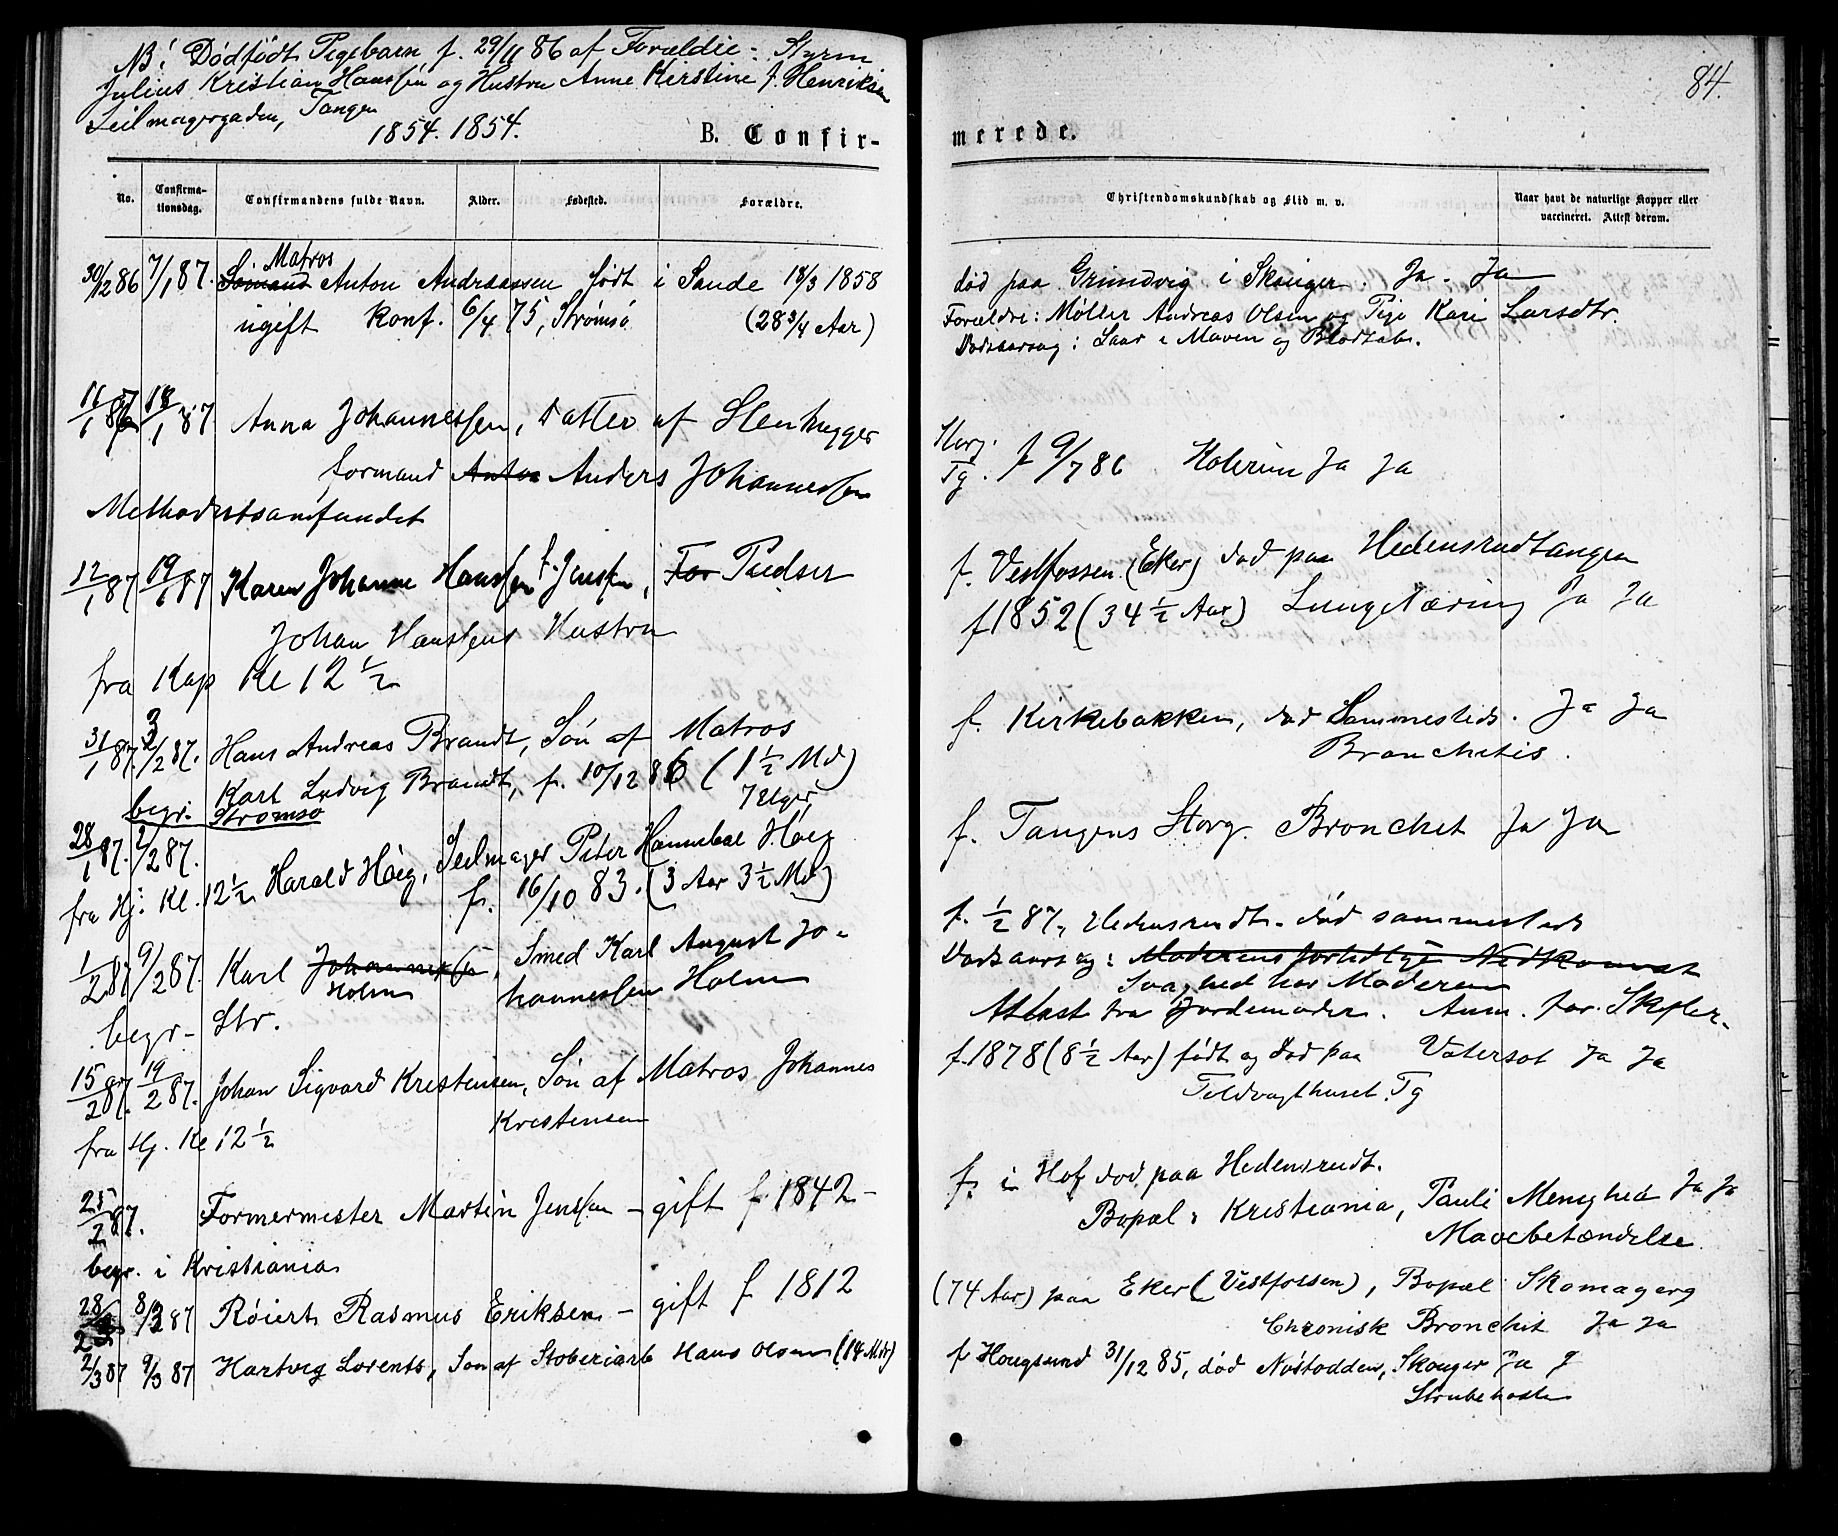 NB! Dødfødt Pigebarn f. 29/11 86 af Forældre: Styrm
Julius Kristian Hanssen og Hustru Anne Kirstine f. Henriksen
Seilmagergaden, Tangen
1854. 1854.
B. Confir-
No.
Confirma-
tionsdag.
Confirmandens fulde Navn.
Alder.
Fødested.
Forældre.
30/12 86 7/1 87. Sømand Matros Anton Andreassen født i Sande 18/3 1858
ugift Konf. 6/4 75, Strømsø (28 3/4 Aar)
11/1 87 18/1 87 Anna Johannessen, Datter af Stenhugger
formand Anton Anders Johannessen
Methodistsamfundet
12/1 87 19/1 87 Karen Johanne Hanssen f. Jensen, For Pudser
Johan Hanssens Hustru
fra Kap Kl 12 1/2
31/1 87. 3/2 87. Hans Andreas Brandt, Søn af Matros
Karl Ludvig Brandt, f. 10/12 86 (1 1/2 Md)
7 Uger
begr. Strømsø
28/1 87. 2/2 87.
fra Hj. Kl. 12 1/2 Harald Høeg, Seilmager Peter Hannibal Høeg
f. 16/10 83. (3 Aar 3 1/2 Md)
1/2 87 9/2 87. Karl Johannessen, Smed Karl August Jo-
Holm hannessen Holm
begr. Str.
15/2 87. 19/2 87. Johan Sigvard Kristensen, Søn af Matros Johannes
Kristensen
fra Hj. Kl 12 1/2
25/2 87. Formermester Martin Jenssen - gift f. 1842 -
begr. i Kristiania
28/2 8/3 87 Røiert Rasmus Eriksen - gift f 1812
2/3 87 9/3 87 Hartvig Lorents, Søn af Støberiarb Hans Olsen (14 Mdr)
84.
merede.
Christendomskundskab og Flid m. v.
Naar havt de naturlige Kopper eller
vaccineret. Attest derom.
død paa Grimsvig i Skouger. Ja - Ja
Forældre: Møller Andreas Olsen og Pige Kari Larsdtr.
Dødsaarsag: Saar i Maven og Blodtab.
Storg.
Tg. f 9/7 86 Kolerin Ja Ja
f. Vestfossen (Eker) død paa Hedensrudtangen
f 1852 (34 1/2 Aar) Lungetæring Ja Ja
f. Kirkebakken, død Sammesteds. Ja Ja
Bronchitis.
f. Tangens Storg. Bronchit Ja Ja
f. 1/2 87, Hedensrudt. død sammesteds
Dødsaarsag: Moderens fortidlige Nedkomst
Svaghed hos Moderen
Attest fra Jordemoder. Anm. for. Skifter.
f. 1878 (8 1/2 Aar) født og død paa Vatersot Ja Ja
Toldvagthuset. Tg
f. i Hof død paa Hedensrudt.
Bopæl: Kristiania, Pauli Menighed Ja Ja
Mavebetændelse
(74 Aar) paa Eker (Vestfossen), Bopæl Skomagerg
Chronisk Bronchit Ja Ja
f Hougsund 31/12 85, død Nøstodden, Skouger Ja
Strubehoste